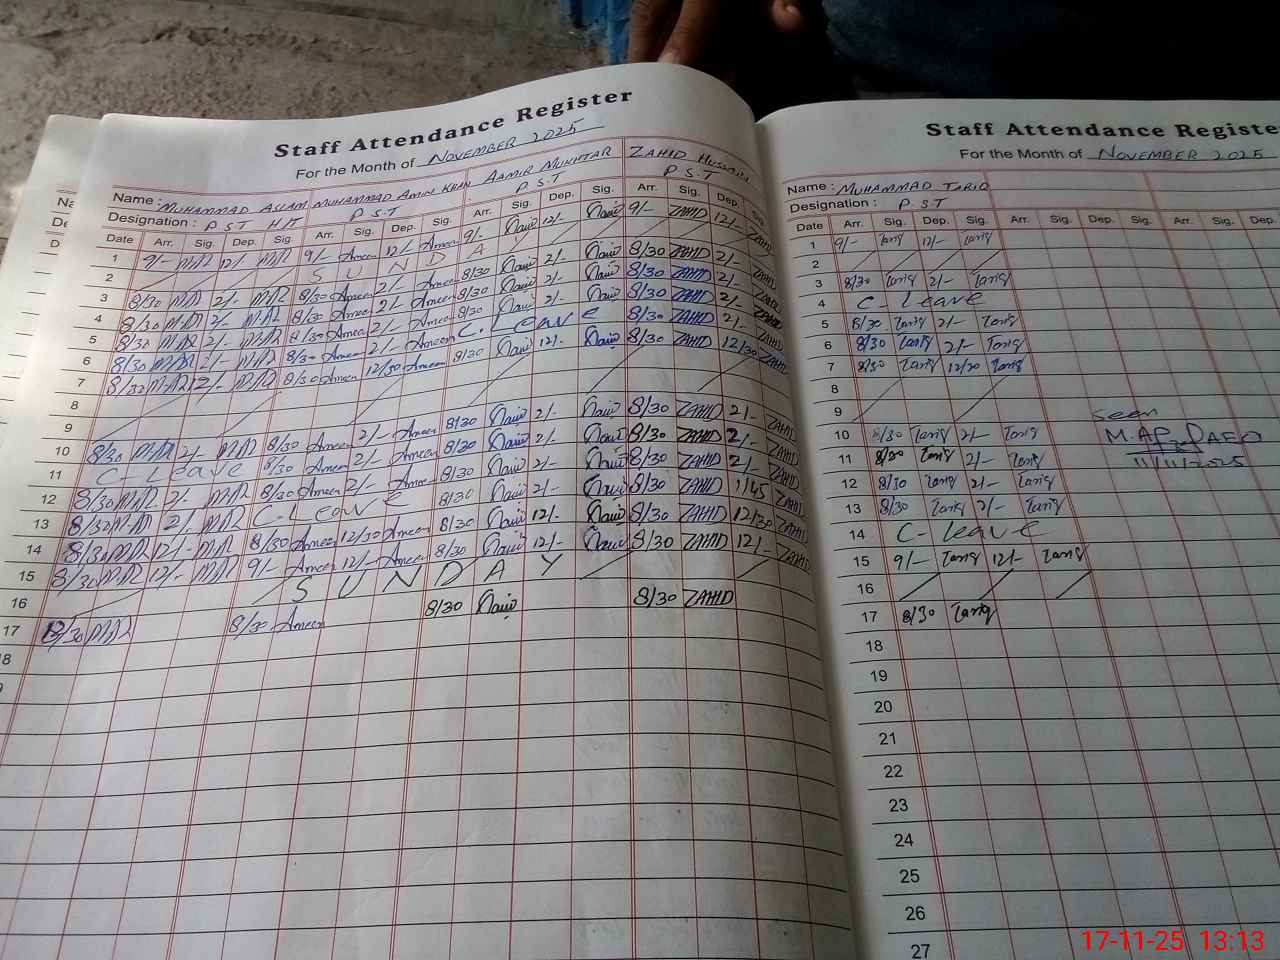 Staff Attendance Register
For the Month of NOVEMBER 2025
Name: MUHAMMAD ASLAM MUHAMMAD AMIN KHAN AAMIR MUKHTAR ZAHID HUSSAIN
Designation: P S T H.T P S.T P S.T P S.T
Date Arr. Sig. Dep. Sig. Arr. Sig. Dep. Sig. Arr. Sig. Dep. Sig. Arr. Sig. Dep. Sig.
1 9/- 12/- 9/- Ameen 12/- Ameen 9/- 12/- 9/- ZAHID 12/- ZAHID
2 SUNDAY
3 8/30 2/- 8/30 Ameen 2/- Ameen 8/30 2/- 8/30 ZAHID 2/- ZAHID
4 8/30 2/- 8/30 Ameen 2/- Ameen 8/30 2/- 8/30 ZAHID 2/- ZAHID
5 8/30 2/- 8/30 Ameen 2/- Ameen 8/30 2/- 8/30 ZAHID 2/- ZAHID
6 8/30 2/- 8/30 Ameen 2/- Ameen C. Leave 8/30 ZAHID 2/- ZAHID
7 8/30 12/- 8/30 Ameen 12/30 Ameen 8/30 12/- 8/30 ZAHID 12/30 ZAHID
8
9
10 8/30 2/- 8/30 Ameen 2/- Ameen 8/30 2/- 8/30 ZAHID 2/- ZAHID
11 C-Leave 8/30 Ameen 2/- Ameen 8/30 2/- 8/30 ZAHID 2/- ZAHID
12 8/30 2/- 8/30 Ameen 2/- Ameen 8/30 2/- 8/30 ZAHID 2/- ZAHID
13 8/30 2/- C-Leave 8/30 2/- 8/30 ZAHID 1/45 ZAHID
14 8/30 12/- 8/30 Ameen 12/30 Ameen 8/30 12/- 8/30 ZAHID 12/30 ZAHID
15 8/30 12/- 9/- Ameen 12/- Ameen 8/30 12/- 8/30 ZAHID 12/- ZAHID
16 SUNDAY
17 8/30 8/30 Ameen 8/30 8/30 ZAHID
18
Staff Attendance Registe
For the Month of NOVEMBER 2025
Name: MUHAMMAD TARIQ
Designation: P S.T
Date Arr. Sig. Dep. Sig. Arr. Sig. Dep. Sig. Arr. Sig. Dep.
1 9/- Tariq 12/- Tariq
2
3 8/30 Tariq 2/- Tariq
4 C-Leave
5 8/30 Tariq 2/- Tariq
6 8/30 Tariq 2/- Tariq
7 8/30 Tariq 12/30 Tariq
8
9 seen
10 8/30 Tariq 2/- Tariq M. Afzal AEO
11 8/30 Tariq 2/- Tariq 11/11/2025
12 8/30 Tariq 2/- Tariq
13 8/30 Tariq 2/- Tariq
14 C-leave
15 9/- Tariq 12/- Tariq
16
17 8/30 Tariq
18
19
20
21
22
23
24
25
26
27
17-11-25 13:13